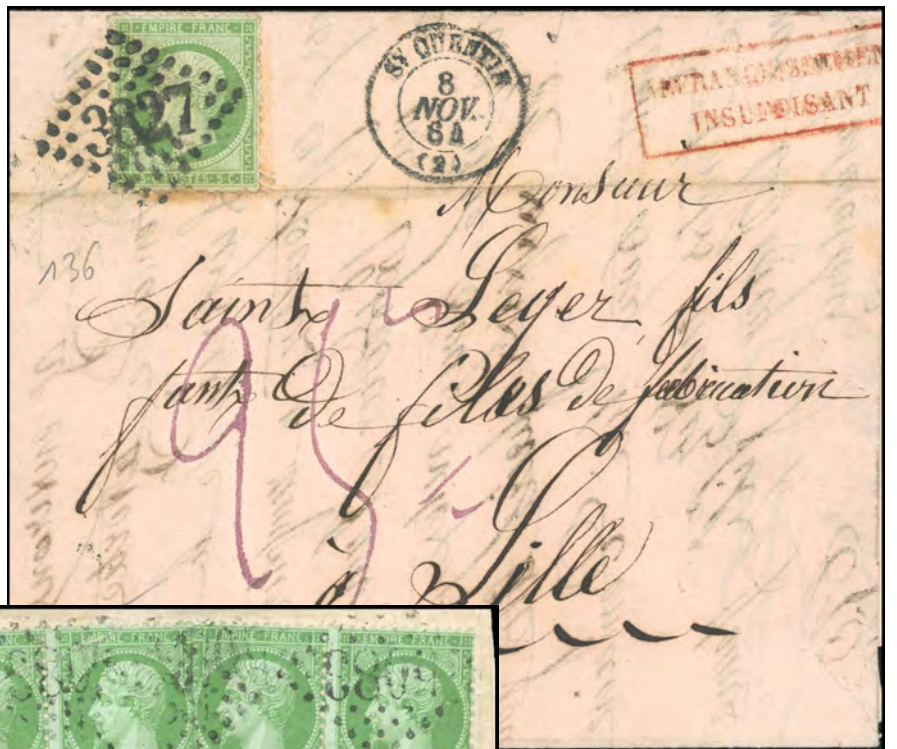 EMPIRE · FRANC
3827
5 · C POSTES · 5 · C
ST QUENTIN
8
NOV.
64
(2)
AFFRANCHISSEMENT
INSUFFISANT
Monsieur
136
Saint Leger fils
fant de files de fabrication
25
à Lille
EMPIRE · FRANC
EMPIRE · FRANC
EMPIRE · FRANC